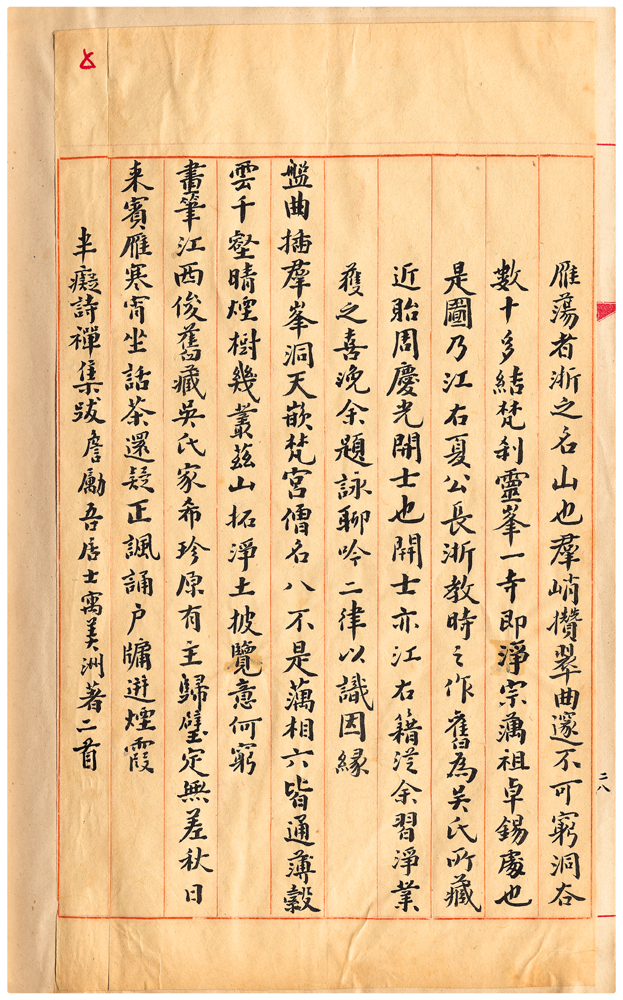 雁蕩者浙之名山也羣峭攢翠曲邃不可窮洞谷
數十多結梵刹靈峯一寺即淨宗蕅祖卓錫處也
是圖乃江右夏公長浙教時之作舊為吳氏所藏
近貽周慶光開士也開士亦江右籍從余習淨業
獲之喜浼余題詠聊吟二律以識因緣
盤曲插羣峯洞天嵌梵宮僧名八不是蕅相六皆通薄縠
雲千壑晴煙樹幾叢茲山拓淨土披覽意何窮
畫筆江西俊舊藏吳氏家希珍原有主歸璧定無差秋日
来賓雁寒宵坐話茶還疑正諷誦戶牖迸煙霞
半癡詩禪集跋詹勵吾居士寓美洲著二首
二八